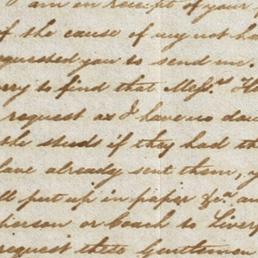 I am in receipt of your
of the cause of my not ha
requested you to send me.
rry to find that Messrs. H
request as I have no dou
the studs if they had th
have already sent them, y
ll put up in paper &c. an
person, or coach to Liverp
request these Gentlemen